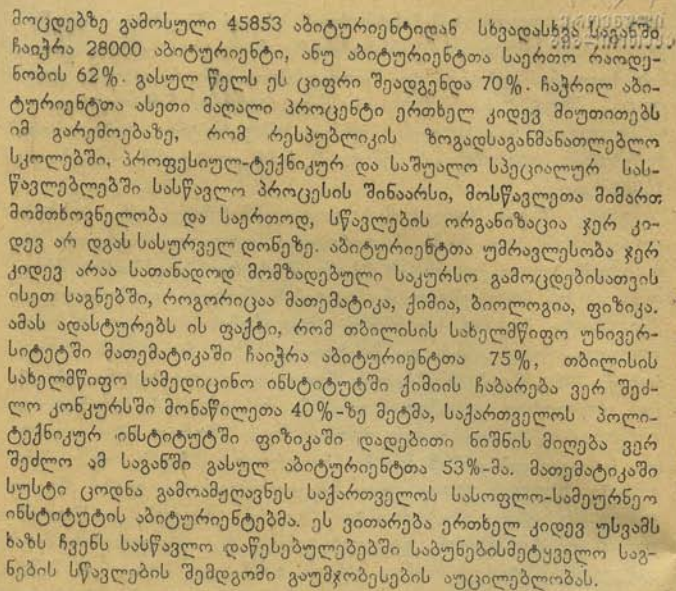 მოცდებზე გამოსული 45853 აბიტურიენტიდან სხვადასხვა საგანში
ჩაიჭრა 28000 აბიტურიენტი, ანუ აბიტურიენტთა საერთო რაოდე-
ნობის 62%. გასულ წელს ეს ციფრი შეადგენდა 70%. ჩაჭრილ აბი-
ტურიენტთა ასეთი მაღალი პროცენტი ერთხელ კიდევ მიუთითებს
იმ გარემოებაზე, რომ რესპუბლიკის ზოგადსაგანმანათლებლო
სკოლებში, პროფესიულ-ტექნიკურ და საშუალო სპეციალურ სას-
წავლებლებში სასწავლო პროცესის შინაარსი, მოსწავლეთა მიმართ
მომთხოვნელობა და საერთოდ, სწავლების ორგანიზაცია ჯერ კი-
დევ არ დგას სასურველ დონეზე. აბიტურიენტთა უმრავლესობა ჯერ
კიდევ არაა სათანადოდ მომზადებული საკურსო გამოცდებისათვის
ისეთ საგნებში, როგორიცაა მათემატიკა, ქიმია, ბიოლოგია, ფიზიკა.
ამას ადასტურებს ის ფაქტი, რომ თბილისის სახელმწიფო უნივერ-
სიტეტში მათემატიკაში ჩაიჭრა აბიტურიენტთა 75%, თბილისის
სახელმწიფო სამედიცინო ინსტიტუტში ქიმიის ჩაბარება ვერ შეძ-
ლო კონკურსში მონაწილეთა 40%-ზე მეტმა, საქართველოს პოლი-
ტექნიკურ ინსტიტუტში ფიზიკაში დადებითი ნიშნის მიღება ვერ
შეძლო ამ საგანში გასულ აბიტურიენტთა 53%-მა. მათემატიკაში
სუსტი ცოდნა გამოამჟღავნეს საქართველოს სასოფლო-სამეურნეო
ინსტიტუტის აბიტურიენტებმა. ეს ვითარება ერთხელ კიდევ უსვამს
ხაზს ჩვენს სასწავლო დაწესებულებებში საბუნებისმეტყველო საგ-
ნების სწავლების შემდგომი გაუმჯობესების აუცილებლობას.